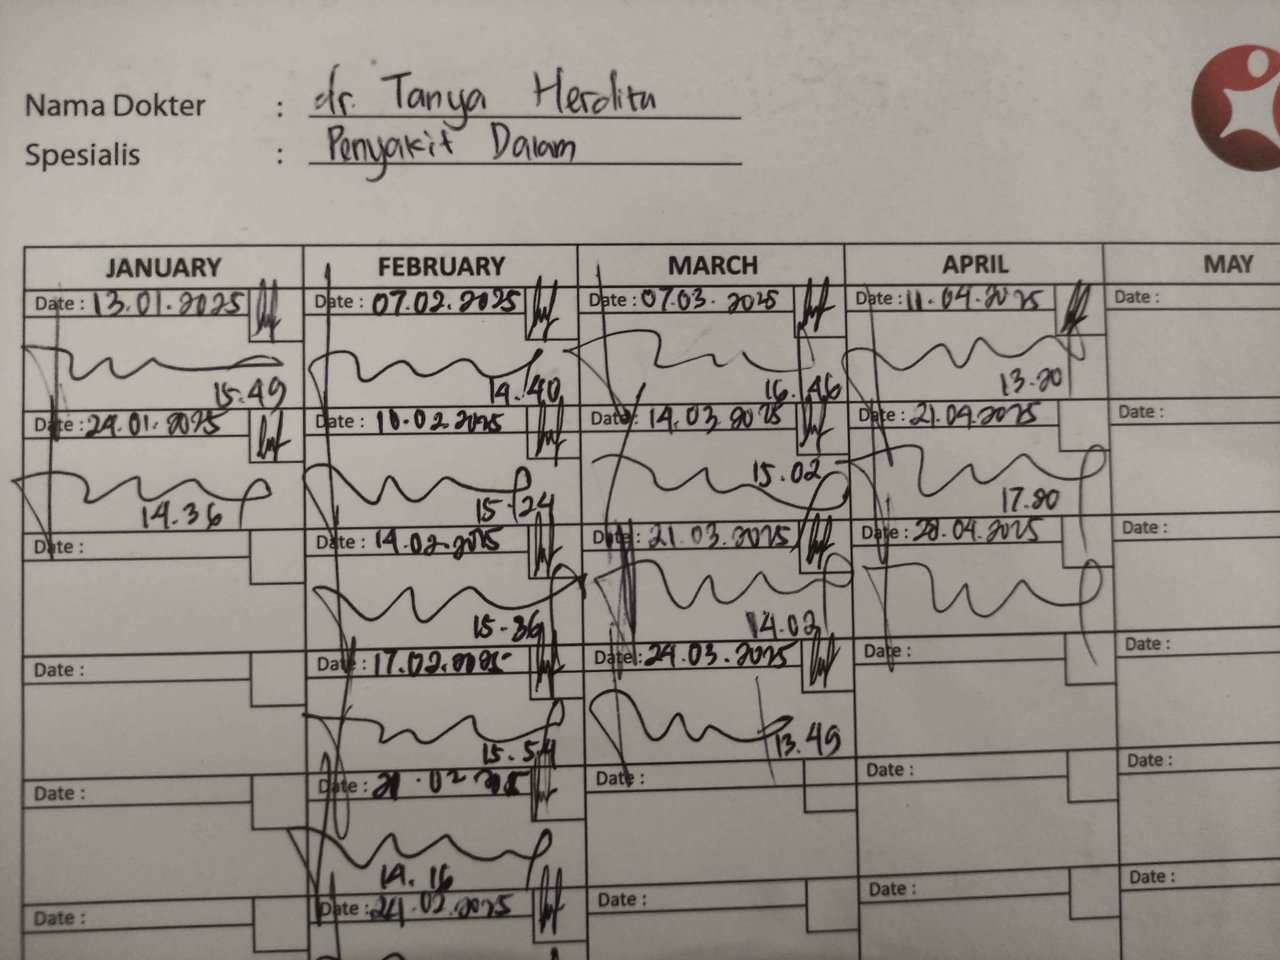 Nama Dokter : dr. Tanya Herdita
Spesialis : Penyakit Dalam
JANUARY FEBRUARY MARCH APRIL MAY
Date : 13.01.2025 Date : 07.02.2025 Date : 07.03.2025 Date : 11.04.2025 Date :
15.49 14.40 16.46 13.20
Date : 24.01.2025 Date : 10.02.2025 Date : 14.03.2025 Date : 21.04.2025 Date :
14.36 15.24 15.02 17.20
Date : Date : 14.02.2025 Date : 21.03.2025 Date : 28.04.2025 Date :
15-36 14.02
Date : Date : 17.02.2025 Date : 24.03.2025 Date : Date :
15.54 13.49
Date : Date : 21.02.2025 Date : Date : Date :
14.16
Date : Date : 24.02.2025 Date : Date : Date :